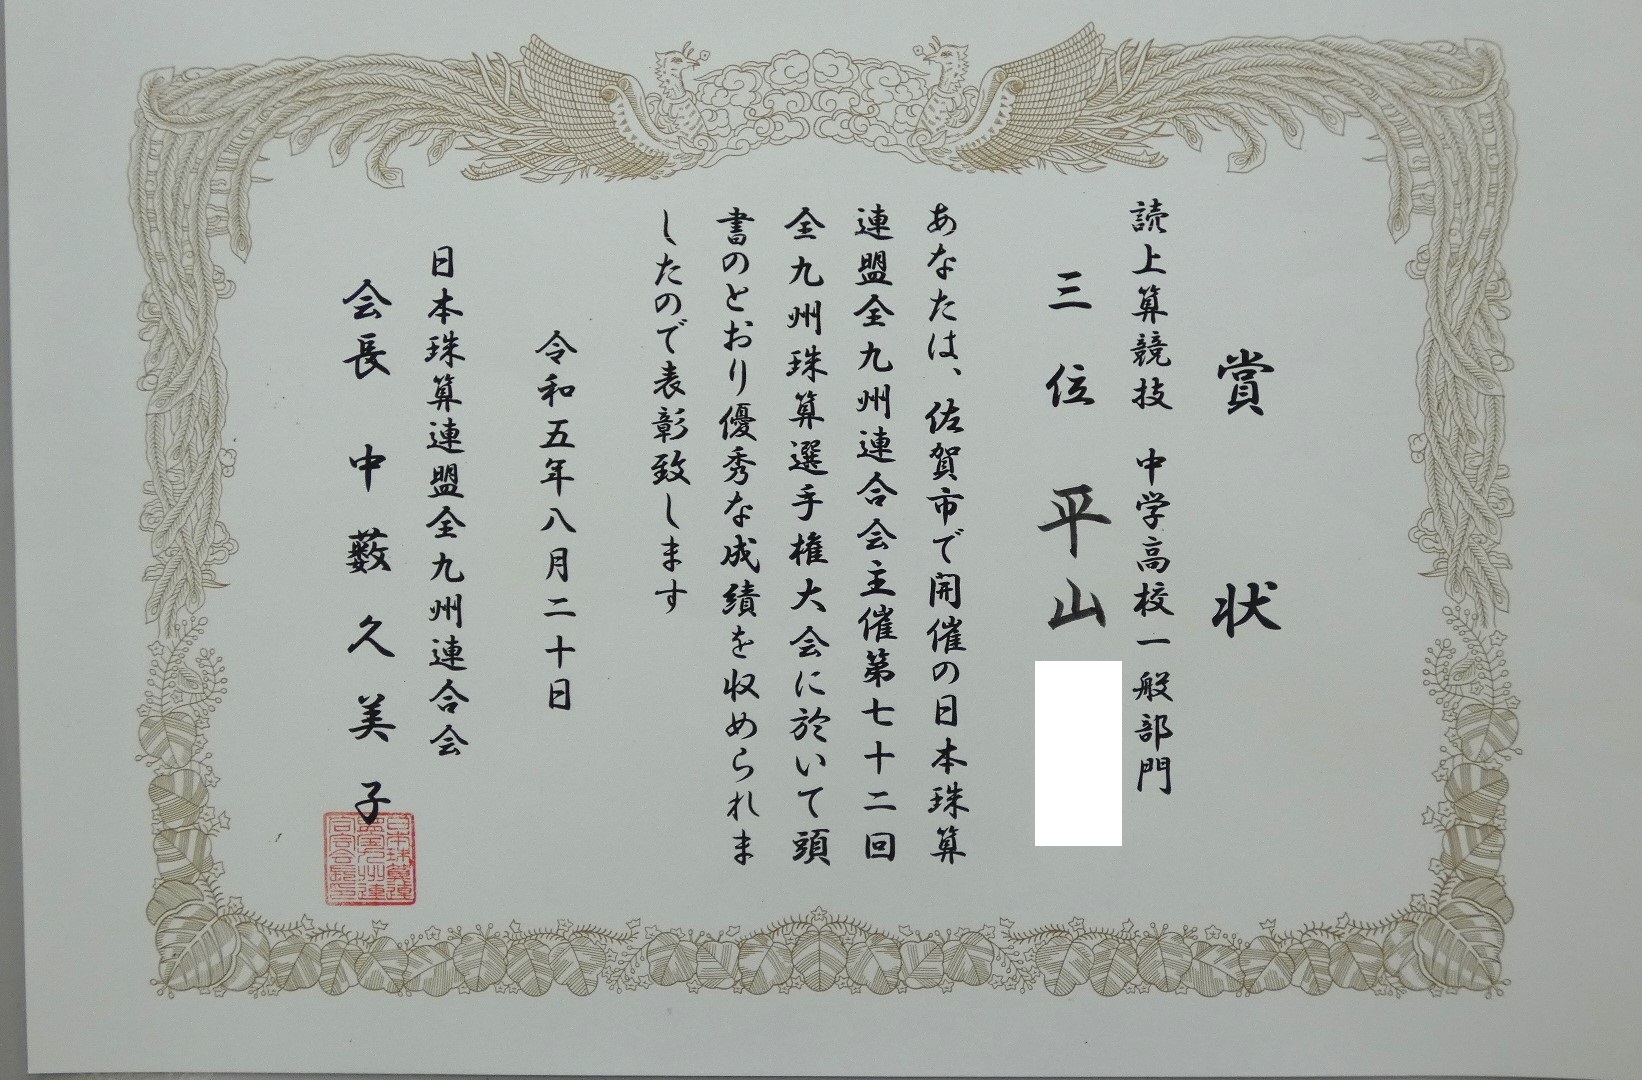 賞状
読上算競技 中学高校一般部門
三位 平山
あなたは、佐賀市で開催の日本珠算
連盟全九州連合会主催第七十二回
全九州珠算選手権大会に於いて頭
書のとおり優秀な成績を収められま
したので表彰致します
令和五年八月二十日
日本珠算連盟全九州連合会
会長 中藪久美子